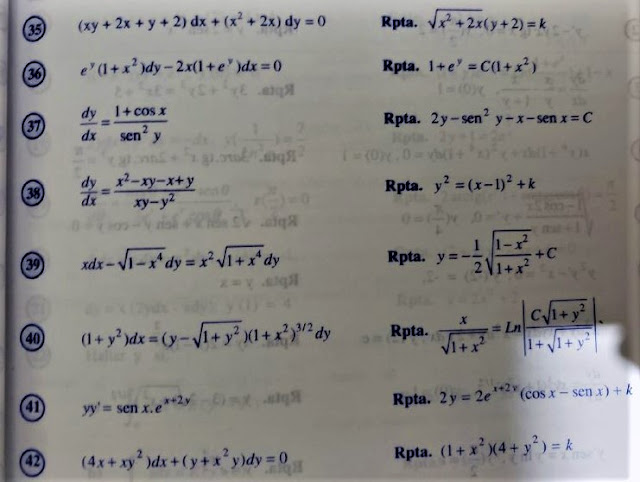 35 (xy + 2x + y + 2) dx + (x² + 2x) dy = 0 Rpta. √(x² + 2x)(y + 2) = k
36 e^y (1 + x²)dy – 2x(1 + e^y)dx = 0 Rpta. 1 + e^y = C(1 + x²)
37 dy/dx = (1 + cos x)/(sen² y) Rpta. 2y – sen² y – x – sen x = C
38 dy/dx = (x² – xy – x + y)/(xy – y²) Rpta. y² = (x – 1)² + k
39 xdx – √(1 – x⁴) dy = x² √(1 + x⁴) dy Rpta. y = – 1/2 √((1 – x²)/(1 + x²)) + C
40 (1 + y²)dx = (y – √(1 + y²))(1 + x²)^(3/2) dy Rpta. x/√(1 + x²) = Ln |C√(1 + y²)/(1 + √(1 + y²))|
41 yy' = sen x.e^(x+2y) Rpta. 2y = 2e^(x+2y) (cos x – sen x) + k
42 (4x + xy²)dx + (y + x² y)dy = 0 Rpta. (1 + x²)(4 + y²) = k